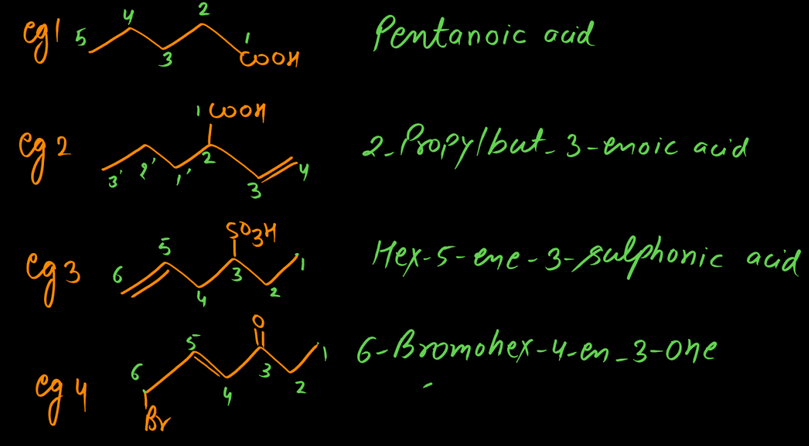 eg1 5 4 3 2 1 COOH Pentanoic acid
eg 2 1 COOH 3' 2' 1' 2 3 4 2-Propylbut-3-enoic acid
eg 3 6 5 4 SO3H 3 2 1 Hex-5-ene-3-sulphonic acid
eg 4 6 Br 5 4 O 3 2 1 6-Bromohex-4-en-3-one